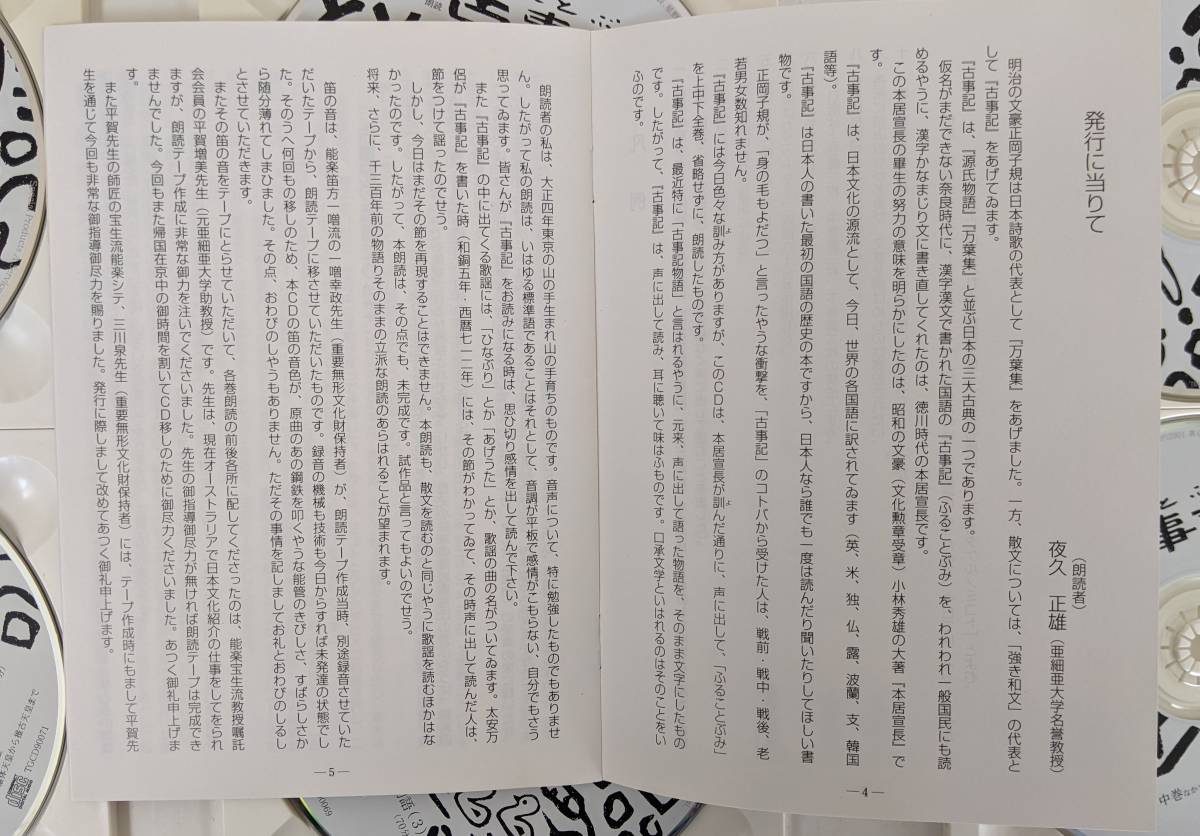 発行に当りて
(朗読者)
夜久 正雄(亜細亜大学名誉教授)
明治の文豪正岡子規は日本詩歌の代表として『万葉集』をあげました。一方、散文については、「強き和文」の代表と
して『古事記』をあげてゐます。
『古事記』は、『源氏物語』『万葉集』と並ぶ日本の三大古典の一つであります。
仮名がまだできない奈良時代に、漢字漢文で書かれた国語の『古事記』(ふることぶみ)を、われわれ一般国民にも読
めるやうに、漢字かなまじり文に書き直してくれたのは、徳川時代の本居宣長です。
この本居宣長の畢生の努力の意味を明らかにしたのは、昭和の文豪(文化勲章受章)小林秀雄の大著『本居宣長』で
す。
『古事記』は、日本文化の源流として、今日、世界の各国語に訳されてゐます(英、米、独、仏、露、波蘭、支、韓国
語等)。
『古事記』は日本人の書いた最初の国語の歴史の本ですから、日本人なら誰でも一度は読んだり聞いたりしてほしい書
物です。
正岡子規が、「身の毛もよだつ」と言ったやうな衝撃を、「古事記」のコトバから受けた人は、戦前・戦中・戦後、老
若男女数知れません。
『古事記』には今日色々な訓み方がありますが、このCDは、本居宣長が訓んだ通りに、声に出して、「ふることぶみ」
を上中下全巻、省略せずに、朗読したものです。
『古事記』は、最近特に「古事記物語」と言はれるやうに、元来、声に出して語った物語を、そのまま文字にしたもの
です。したがって、『古事記』は、声に出して読み、耳に聴いて味はふものです。口承文学といはれるのはそのことをい
ふのです。
—4—
朗読者の私は、大正四年東京の山の手生まれ山の手育ちのものです。音声について、特に勉強したものでもありませ
ん。したがって私の朗読は、いはゆる標準語であることはそれとして、音調が平板で感情がこもらない、自分でもさう
思ってゐます。皆さんが『古事記』をお読みになる時は、思ひ切り感情を出して読んで下さい。
また『古事記』の中に出てくる歌謡には、「ひなぶり」とか「あげうた」とか、歌謡の曲の名がついてゐます。太安万
侶が『古事記』を書いた時(和銅五年・西暦七一二年)には、その節がわかってゐて、その時声に出して読んだ人は、
節をつけて謡ったのでせう。
しかし、今日はまだその節を再現することはできません。本朗読も、散文を読むのと同じやうに歌謡を読むほかはな
かったのです。したがって、本朗読は、その点でも、未完成です。試作品と言ってもよいのでせう。
将来、さらに、千三百年前の物語りそのままの立派な朗読のあらはれることが望まれます。
笛の音は、能楽笛方一噌流の一噌幸政先生(重要無形文化財保持者)が、朗読テープ作成当時、別途録音させていた
だいたテープから、朗読テープに移させていただいたものです。録音の機械も技術も今日からすれば未発達の状態でし
た。そのうへ何回もの移しのため、本CDの笛の音色が、原曲のあの鋼鉄を叩くやうな能管のきびしさ、すばらしさか
ら随分薄れてしまひました。その点、おわびのしやうもありません。ただその事情を記しましてお礼とおわびのしるし
とさせていただきます。
またその笛の音をテープにとらせていただいて、各巻朗読の前後各所に配してくださったのは、能楽宝生流教授嘱託
会会員の平賀増美先生(元亜細亜大学助教授)です。先生は、現在オーストラリアで日本文化紹介の仕事をしてをられ
ますが、朗読テープ作成に非常な御力を注いでくださいました。先生の御指導御尽力が無ければ朗読テープは完成でき
ませんでした。今回もまた帰国在京中の御時間を割いてCD移しのために御尽力くださいました。あつく御礼申上げま
す。
また平賀先生の師匠の宝生流能楽シテ、三川泉先生(重要無形文化財保持者)には、テープ作成時にもまして平賀先
生を通じて今回も非常な御指導御尽力を賜りました。発行に際しまして改めてあつく御礼申上げます。
—5—
TGCD90071